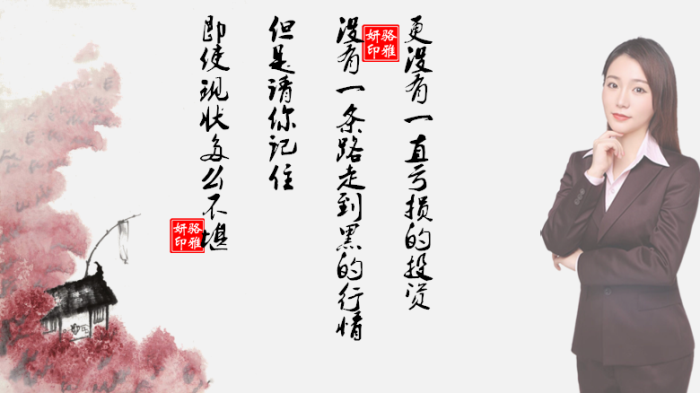 即使现状多么不堪
骆雅
妍印
但是请你记住
没有一条路走到黑的行情
骆雅
妍印
更没有一直亏损的投资